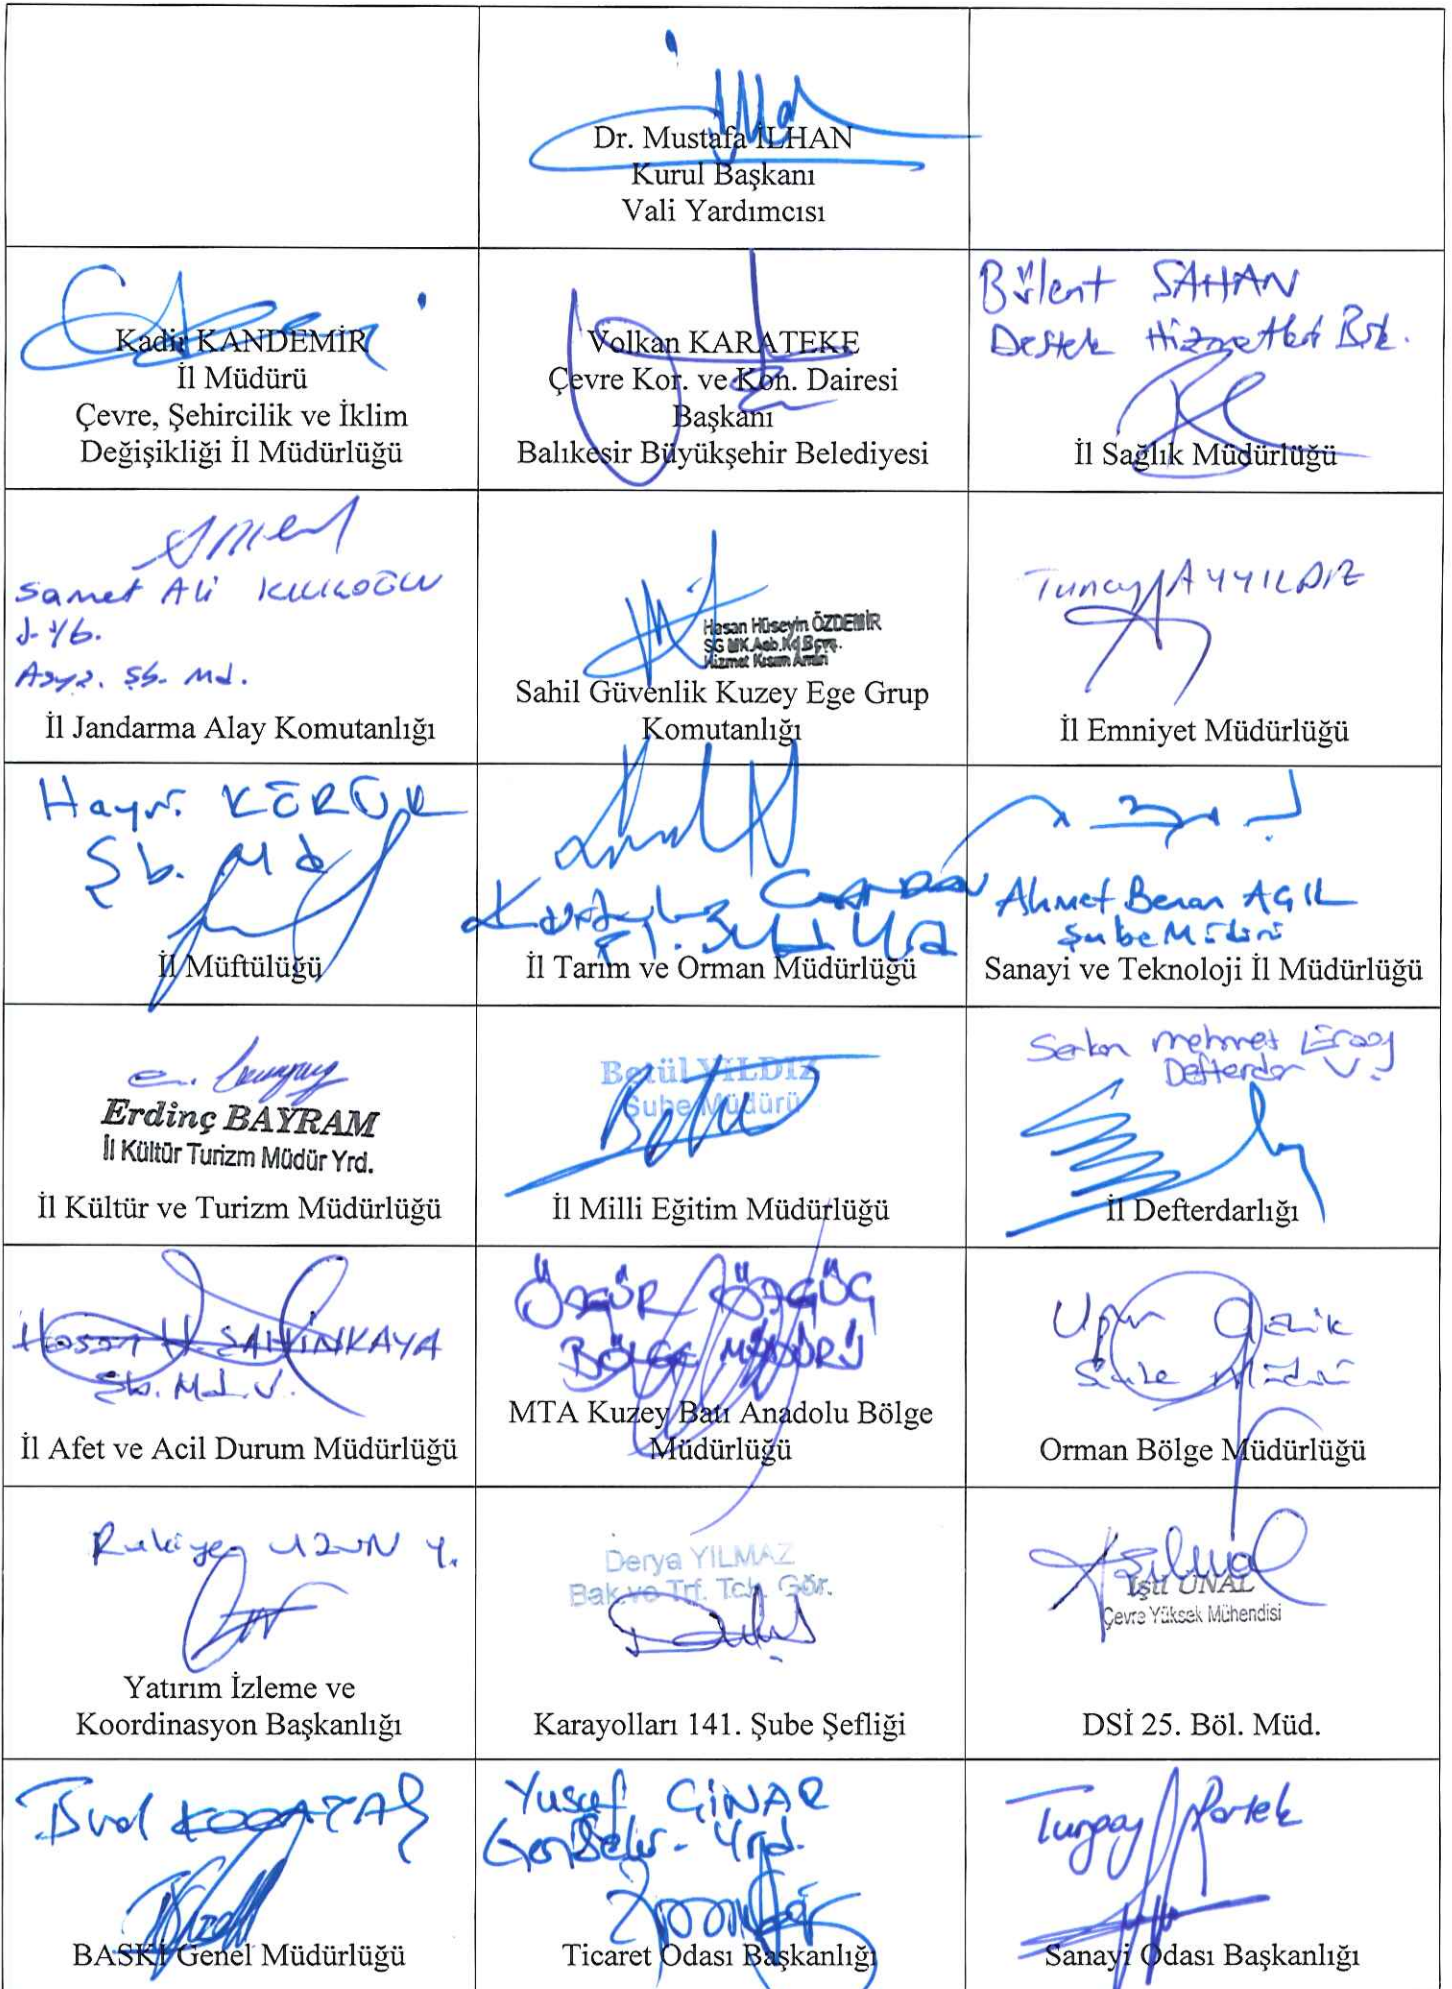 Dr. Mustafa İLHAN
Kurul Başkanı
Vali Yardımcısı
Kadir KANDEMİR
İl Müdürü
Çevre, Şehircilik ve İklim
Değişikliği İl Müdürlüğü
Volkan KARATEKE
Çevre Kor. ve Kon. Dairesi
Başkanı
Balıkesir Büyükşehir Belediyesi
Bülent SAHAN
Destek Hizmetleri Bşk.
İl Sağlık Müdürlüğü
Samet Ali
J. Yb.
Asyş. Şb. Md.
İl Jandarma Alay Komutanlığı
Hasan Hüseyin ÖZDEMİR
SG MK.Asb.Kd.Bçvş.
Hizmet Kısım Amiri
Sahil Güvenlik Kuzey Ege Grup
Komutanlığı
Tuncay AYYILDIZ
İl Emniyet Müdürlüğü
Hayri KÖRÜK
Şb. Md
İl Müftülüğü
İl Tarım ve Orman Müdürlüğü
Ahmet Beran AGIL
Şube Müdürü
Sanayi ve Teknoloji İl Müdürlüğü
Erdinç BAYRAM
İl Kültür Turizm Müdür Yrd.
İl Kültür ve Turizm Müdürlüğü
Betül YILDIZ
Şube Müdürü
İl Milli Eğitim Müdürlüğü
Serkan Mehmet Ersoy
Defterdar V.
İl Defterdarlığı
Hasan H. ŞAHİNKAYA
Şb. Md. V.
İl Afet ve Acil Durum Müdürlüğü
ÖZGÜR ÖZGÜÇ
BÖLGE MÜDÜRÜ
MTA Kuzey Batı Anadolu Bölge
Müdürlüğü
Şube Müdürü
Orman Bölge Müdürlüğü
Rukiye UZUN Y.
Yatırım İzleme ve
Koordinasyon Başkanlığı
Derya YILMAZ
Bak.ve Trf. Tek. Gör.
Karayolları 141. Şube Şefliği
Işıl ÜNAL
Çevre Yüksek Mühendisi
DSİ 25. Böl. Müd.
KOCATAŞ
BASKİ Genel Müdürlüğü
Yusuf ÇINAR
Gen. Sekr. Yrd.
Ticaret Odası Başkanlığı
Turgay
Sanayi Odası Başkanlığı